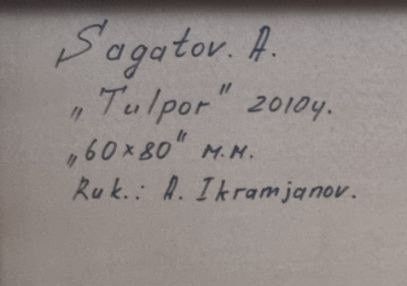 Sagatov. A.
„Tulpor" 2010y.
„60×80" м.м.
Ruk.: A. Ikramjanov.